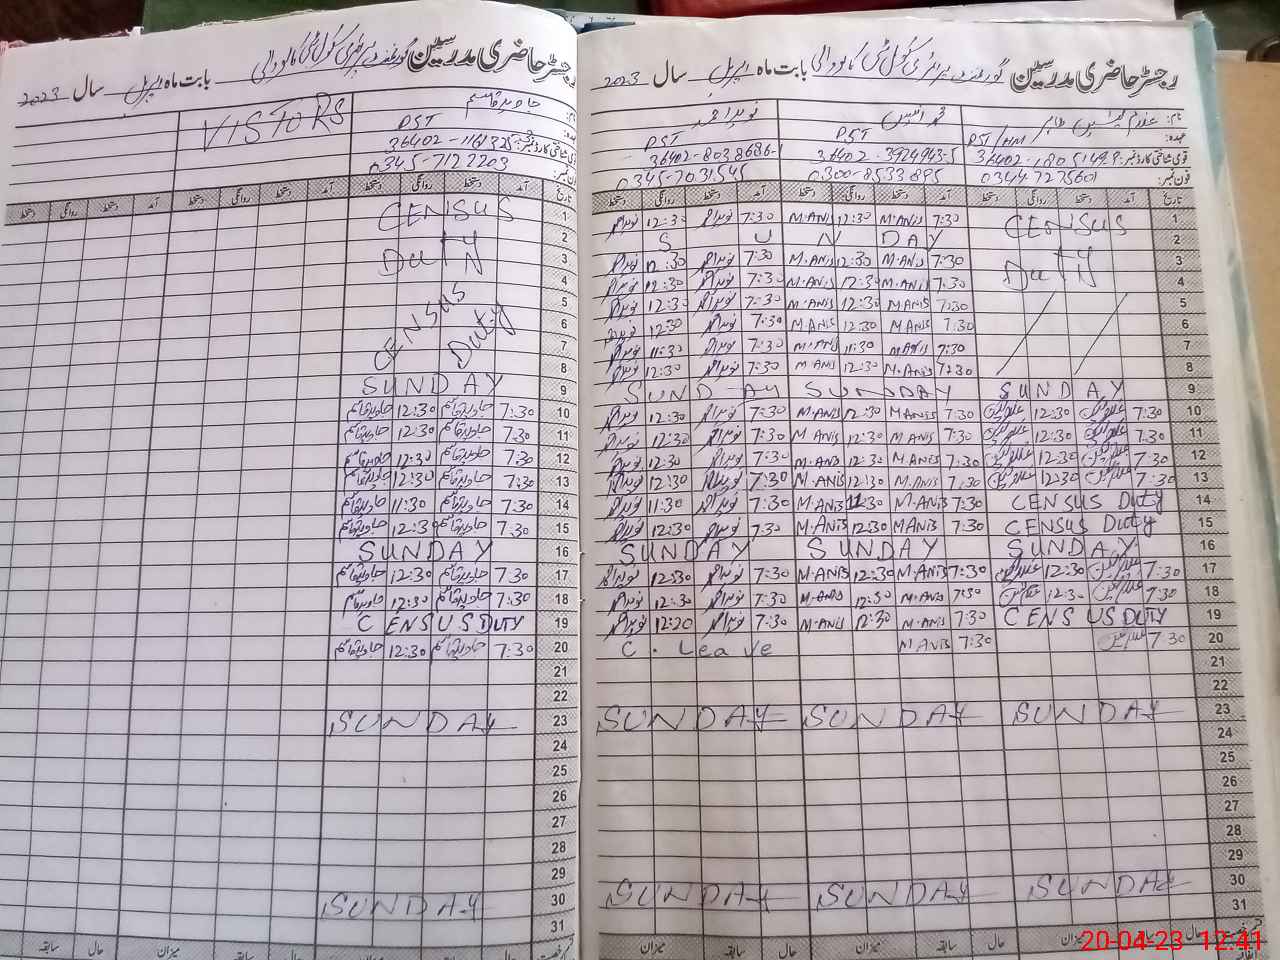 رجسٹر حاضری مدرسین گورنمنٹ پرائمری سکول بابت ماہ اپریل سال 2023
نام:
عہدہ: PST/HM
قومی شناختی کارڈ نمبر: 36402-1805149-9
فون نمبر: 0344 7275601
محمد انیس
PST
36402-3924943-5
0300-8533895
نوید احمد
PST
36402-8038686-1
0345-7031545
تاریخ آمد دستخط روانگی دستخط آمد دستخط روانگی دستخط آمد دستخط روانگی دستخط
1 CENSUS 7:30 M.ANIS 12:30 M.ANIS 7:30 نوید احمد 12:30 نوید احمد
2 S U N DAY
3 Duty 7:30 M.ANIS 12:30 M.ANIS 7:30 نوید احمد 12:30 نوید احمد
4 7:30 M.ANIS 12:30 M.ANIS 7:30 نوید احمد 12:30 نوید احمد
5 7:30 M.ANIS 12:30 M.ANIS 7:30 نوید احمد 12:30 نوید احمد
6 7:30 M.ANIS 12:30 M.ANIS 7:30 نوید احمد 12:30 نوید احمد
7 7:30 M.ANIS 11:30 M.ANIS 7:30 نوید احمد 11:30 نوید احمد
8 7:30 M.ANIS 12:30 M.ANIS 7:30 نوید احمد 12:30 نوید احمد
9 SUNDAY SUNDAY SUNDAY
10 7:30 12:30 7:30 M.ANIS 12:30 M.ANIS 7:30 نوید احمد 12:30 نوید احمد
11 7:30 12:30 7:30 M.ANIS 12:30 M.ANIS 7:30 نوید احمد 12:30 نوید احمد
12 7:30 12:30 7:30 M.ANIS 12:30 M.ANIS 7:30 نوید احمد 12:30 نوید احمد
13 7:30 12:30 7:30 M.ANIS 12:30 M.ANIS 7:30 نوید احمد 12:30 نوید احمد
14 CENSUS Duty 7:30 M.ANIS 11:30 M.ANIS 7:30 نوید احمد 11:30 نوید احمد
15 CENSUS Duty 7:30 M.ANIS 12:30 M.ANIS 7:30 نوید احمد 12:30 نوید احمد
16 SUNDAY SUNDAY SUNDAY
17 7:30 12:30 7:30 M.ANIS 12:30 M.ANIS 7:30 نوید احمد 12:30 نوید احمد
18 7:30 12:30 7:30 M.ANIS 12:30 M.ANIS 7:30 نوید احمد 12:30 نوید احمد
19 CENSUS DUTY 7:30 M.ANIS 12:30 M.ANIS 7:30 نوید احمد 12:20 نوید احمد
20 7:30 7:30 M.ANIS C. Leave
21
22
23 SUNDAY SUNDAY SUNDAY
24
25
26
27
28
29
30 SUNDAY SUNDAY SUNDAY
31
میزان حال سابقہ میزان حال سابقہ
رجسٹر حاضری مدرسین گورنمنٹ پرائمری سکول بابت ماہ اپریل سال 2023
نام: جاوید قاسم
عہدہ: PST
قومی شناختی کارڈ نمبر:
فون نمبر: 0345-7122203
VISTORS
تاریخ آمد دستخط روانگی دستخط آمد دستخط روانگی دستخط آمد دستخط روانگی دستخط
1 CENSUS
2
3 Duty
4
5 CENSUS
6 Duty
7
8
9 SUNDAY
10 7:30 جاوید قاسم 12:30 جاوید قاسم
11 7:30 جاوید قاسم 12:30 جاوید قاسم
12 7:30 جاوید قاسم 12:30 جاوید قاسم
13 7:30 جاوید قاسم 12:30 جاوید قاسم
14 7:30 جاوید قاسم 11:30 جاوید قاسم
15 7:30 جاوید قاسم 12:30 جاوید قاسم
16 SUNDAY
17 7:30 جاوید قاسم 12:30 جاوید قاسم
18 7:30 جاوید قاسم 12:30 جاوید قاسم
19 CENSUS DUTY
20 7:30 جاوید قاسم 12:30 جاوید قاسم
21
22
23 SUNDAY
24
25
26
27
28
29
30 SUNDAY
31
حال سابقہ میزان حال سابقہ
20-04-23 12:41